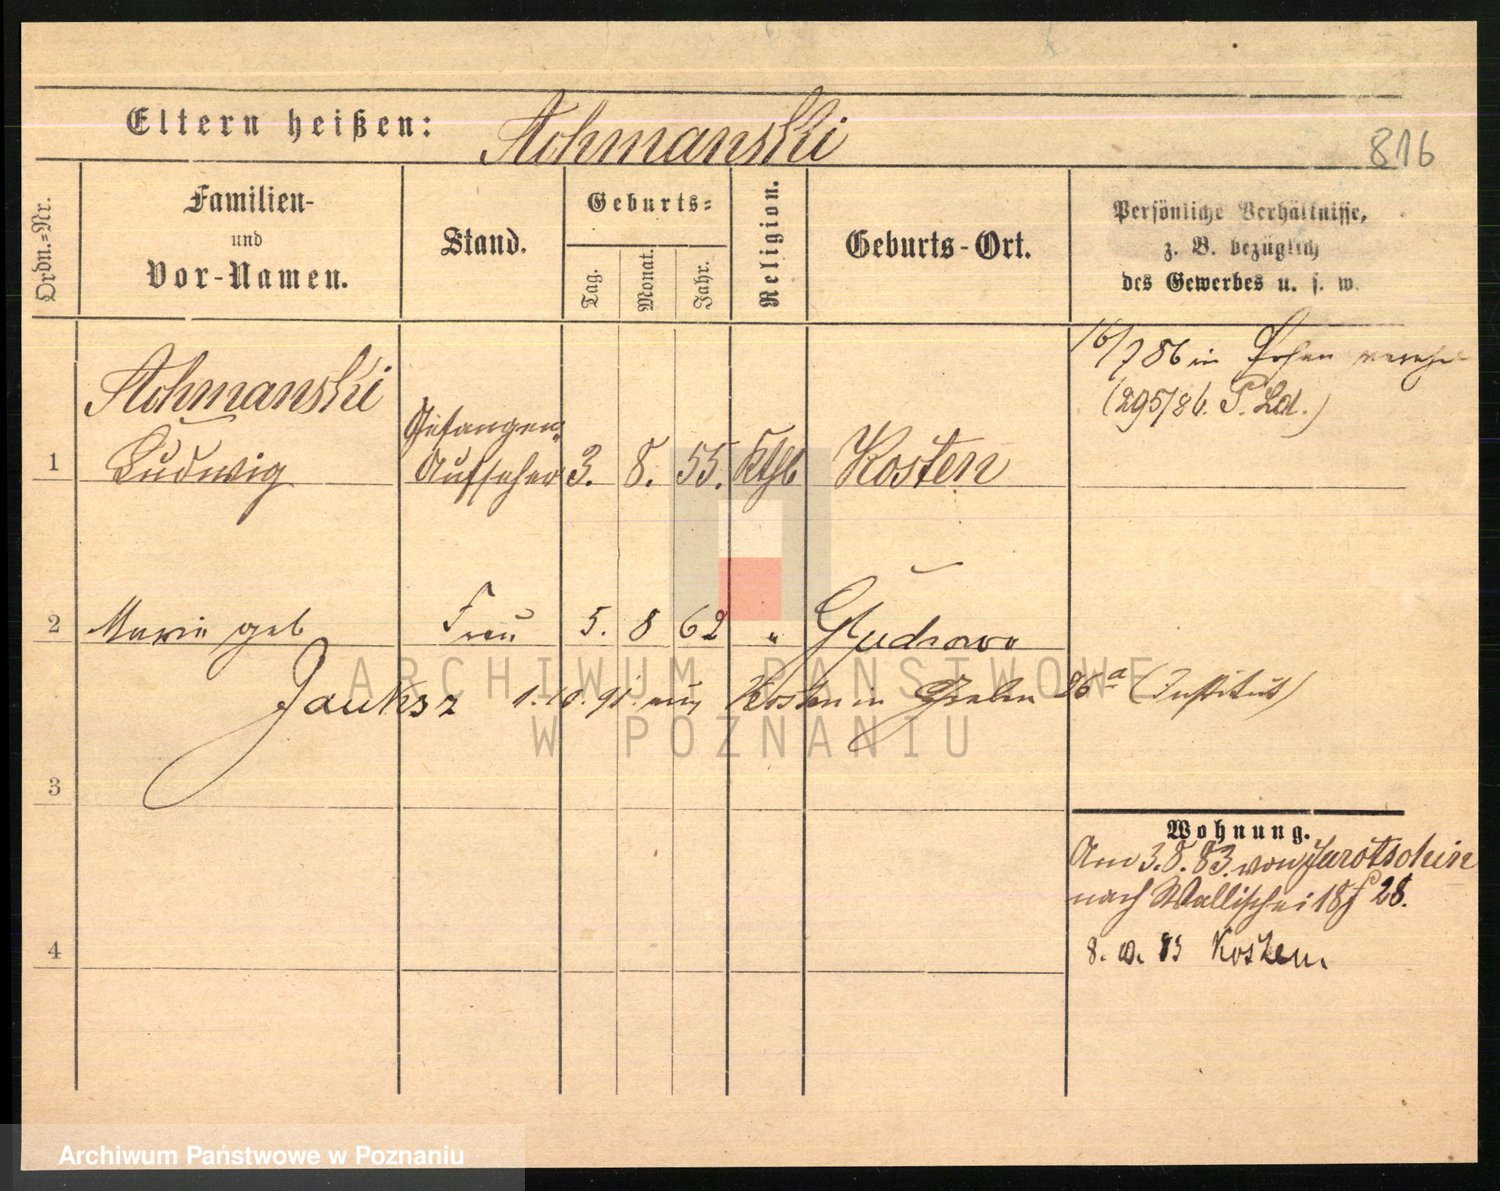 Eltern heißen: Achmanski
816
Ordn.=Nr.
Familien-
und
Vor-Namen.
Stand.
Geburts=
Tag.
Monat.
Jahr.
Religion.
Geburts-Ort.
Persönliche Verhältnisse,
z. B. bezüglich
des Gewerbes u. s. w.
16/7 86 in
(295/86. P. Ld.)
Achmanski
Gefangen=
1 Ludwig Aufseher 3. 8. 55. Kth Kosten
2 Marie geb Frau 5. 8 62 "
1. 10. 91. aus Kosten in 26a (Institut)
3
Wohnung.
Am 3.8.83. von Jarotschin
nach Wallischei 28.
4
83 Kosten.
ARCHIWUM PAŃSTWOWE
W POZNANIU
Archiwum Państwowe w Poznaniu